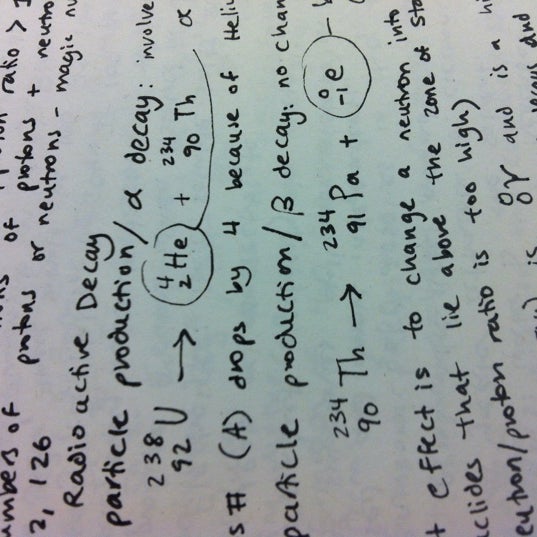 ratio > 1
numbers of protons + neutro
2, 126 protons or neutrons - magic nu
Radioactive Decay
particle production / α decay: involve
²³⁸₉₂U → ⁴₂He + ²³⁴₉₀Th α
s # (A) drops by 4 because of Heliu
particle production / β decay: no chan
²³⁴₉₀Th → ²³⁴₉₁Pa + ⁰₋₁e
t effect is to change a neutron into
clides that lie above the zone of sta
eutron/proton ratio is too high)
is ⁰₀γ and is a hi
and